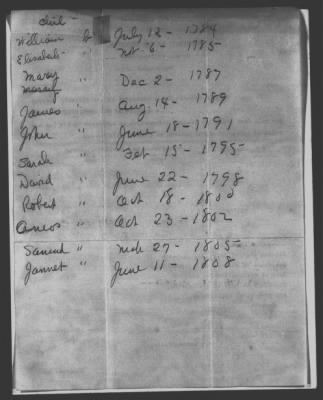 chil-
William b July 12 - 1784
Elizabeth " Nov 6 - 1785
Mary " Dec 2 - 1787
James " Aug. 14 - 1789
John " June 18 - 1791
Sarah " Feb 15 - 1795
David " June 22 - 1798
Robert " Oct 18 - 1800
Amos " Oct 23 - 1802
Samuel " Mch 27 - 1805
Jannet " June 11 - 1808